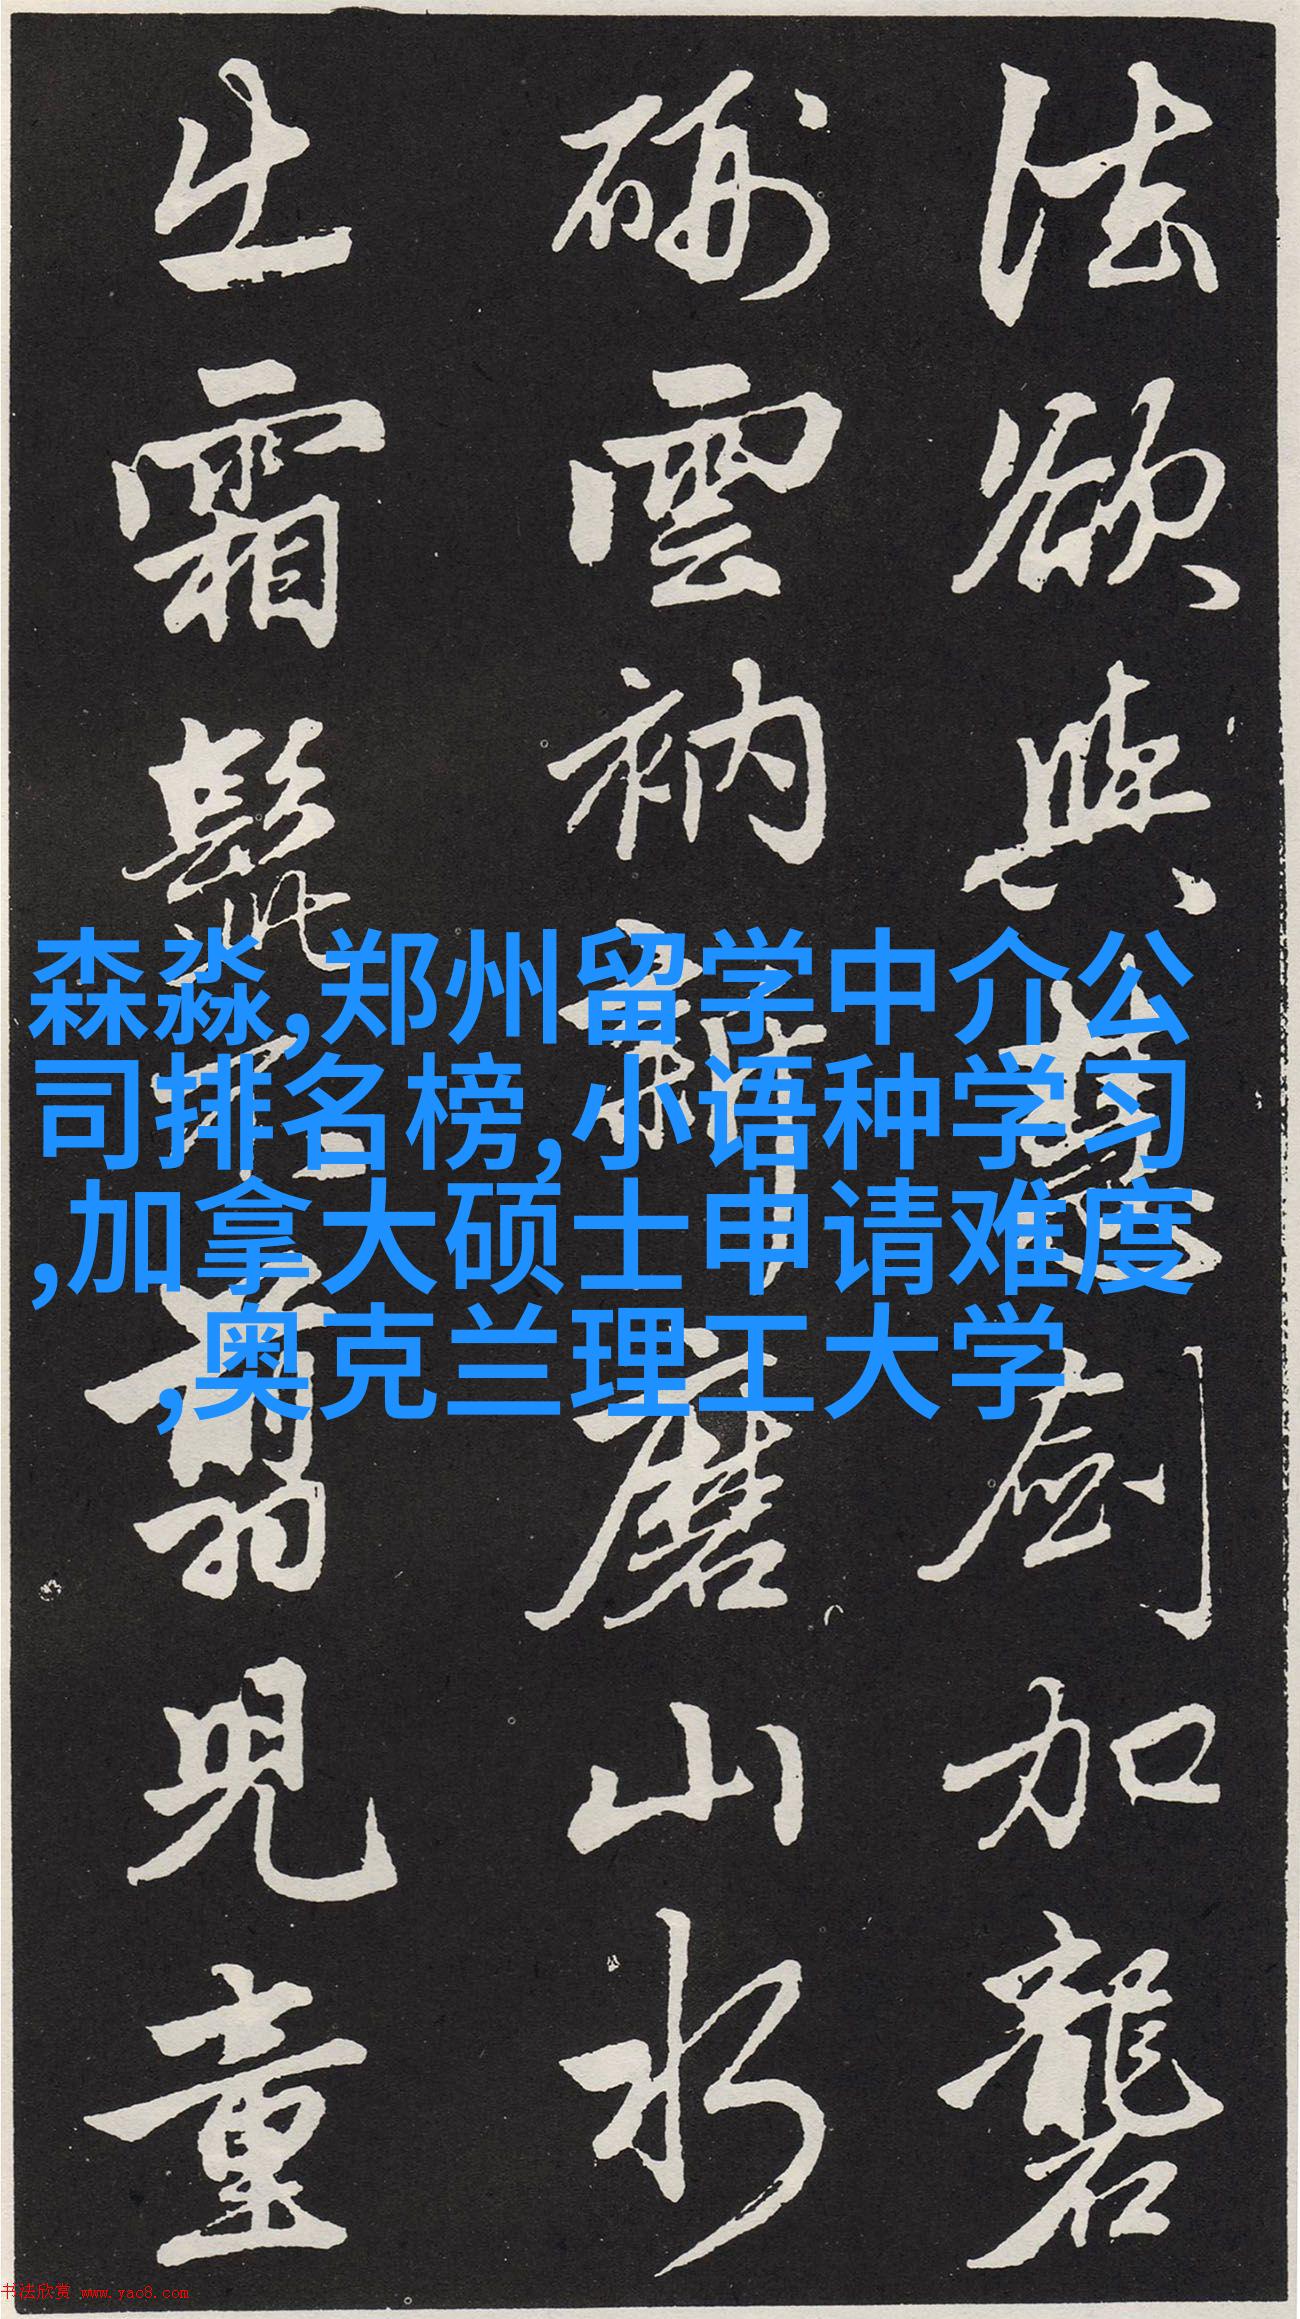 法欲與慧劍加礱
硎雲衲新磨山水
出霜髭不翦兒童
森淼,郑州留学中介公
司排名榜,小语种学习
,加拿大硕士申请难度
,奥克兰理工大学
书法欣赏 www.yac8.com